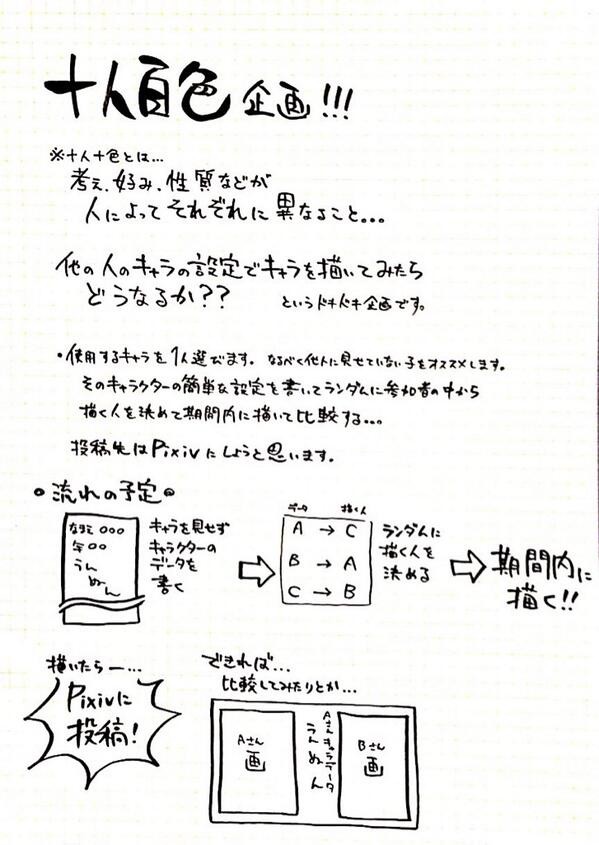 十人百色 企画!!!
※十人十色とは...
考え、好み、性質などが
人によってそれぞれに異なること...
他の人のキャラの設定でキャラを描いてみたら
どうなるか??
というドキドキ企画です。
・使用するキャラを1人選びます。なるべく他人に見せていない子をオススメします。
そのキャラクターの簡単な設定を書いてランダムに参加者の中から
描く人を決めて期間内に描いて比較する...。
投稿先はPixivにしようと思います。
流れの予定
なまえ○○○
年○○
うん
ぬん
キャラを見せず
キャラクターの
データを
書く
データ
描く人
A→C
B→A
C→B
ランダムに
描く人を
決める
期間内に
描く!!
描いたらー...
Pixivに
投稿!
できれば...
比較してみたりとか...
Aさん
画
Aさんキャラデータ
うんぬん
Bさん
画